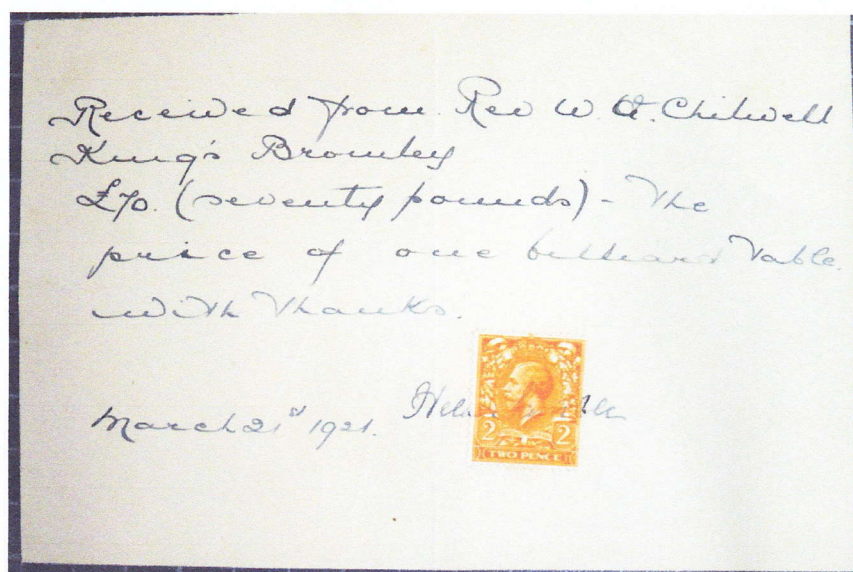 Received from Rev W. A. Chilwell
King's Bromley
£70. (seventy pounds) - The
price of one billiard Table.
with Thanks.
March 21st 1921.
2 2
TWO PENCE